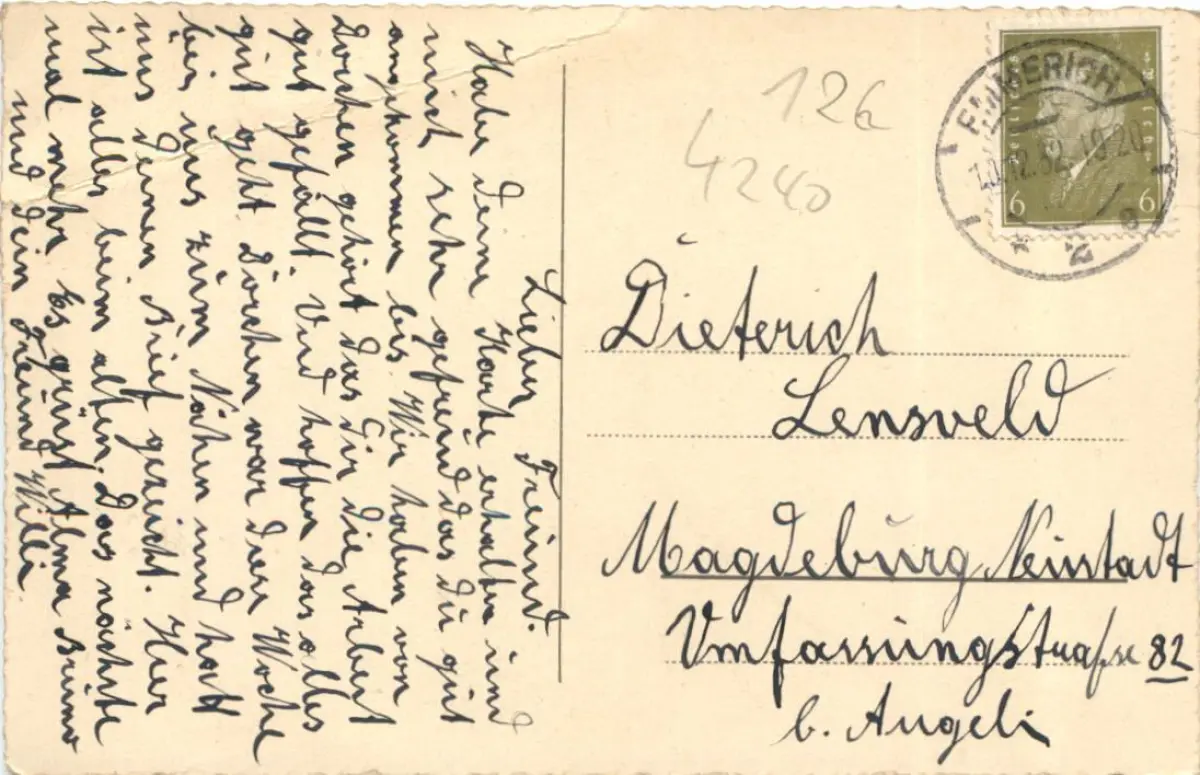 Lieber Freund.
Habe deine Karte erhalten und
mich sehr gefreud das du gut
angekommen bis. Wir haben von
Dorchen gehört das dir die Arbeit
gut gefällt. Und hoffen das alles
gut geht. Dorchen war diese Woche
bei uns zum Nähen und hatt
uns deinen Brief gezeicht. Hier
ist alles beim alten. Das nächste
mal mehr Es grüsst Alma Bruno
und dein Freund Willi
126
4240
EMMERICH
12.32. 19-20
6 6
Dieterich
Lensveld
Magdeburg Neustadt
Umfassungstraße 82
b. Angeli